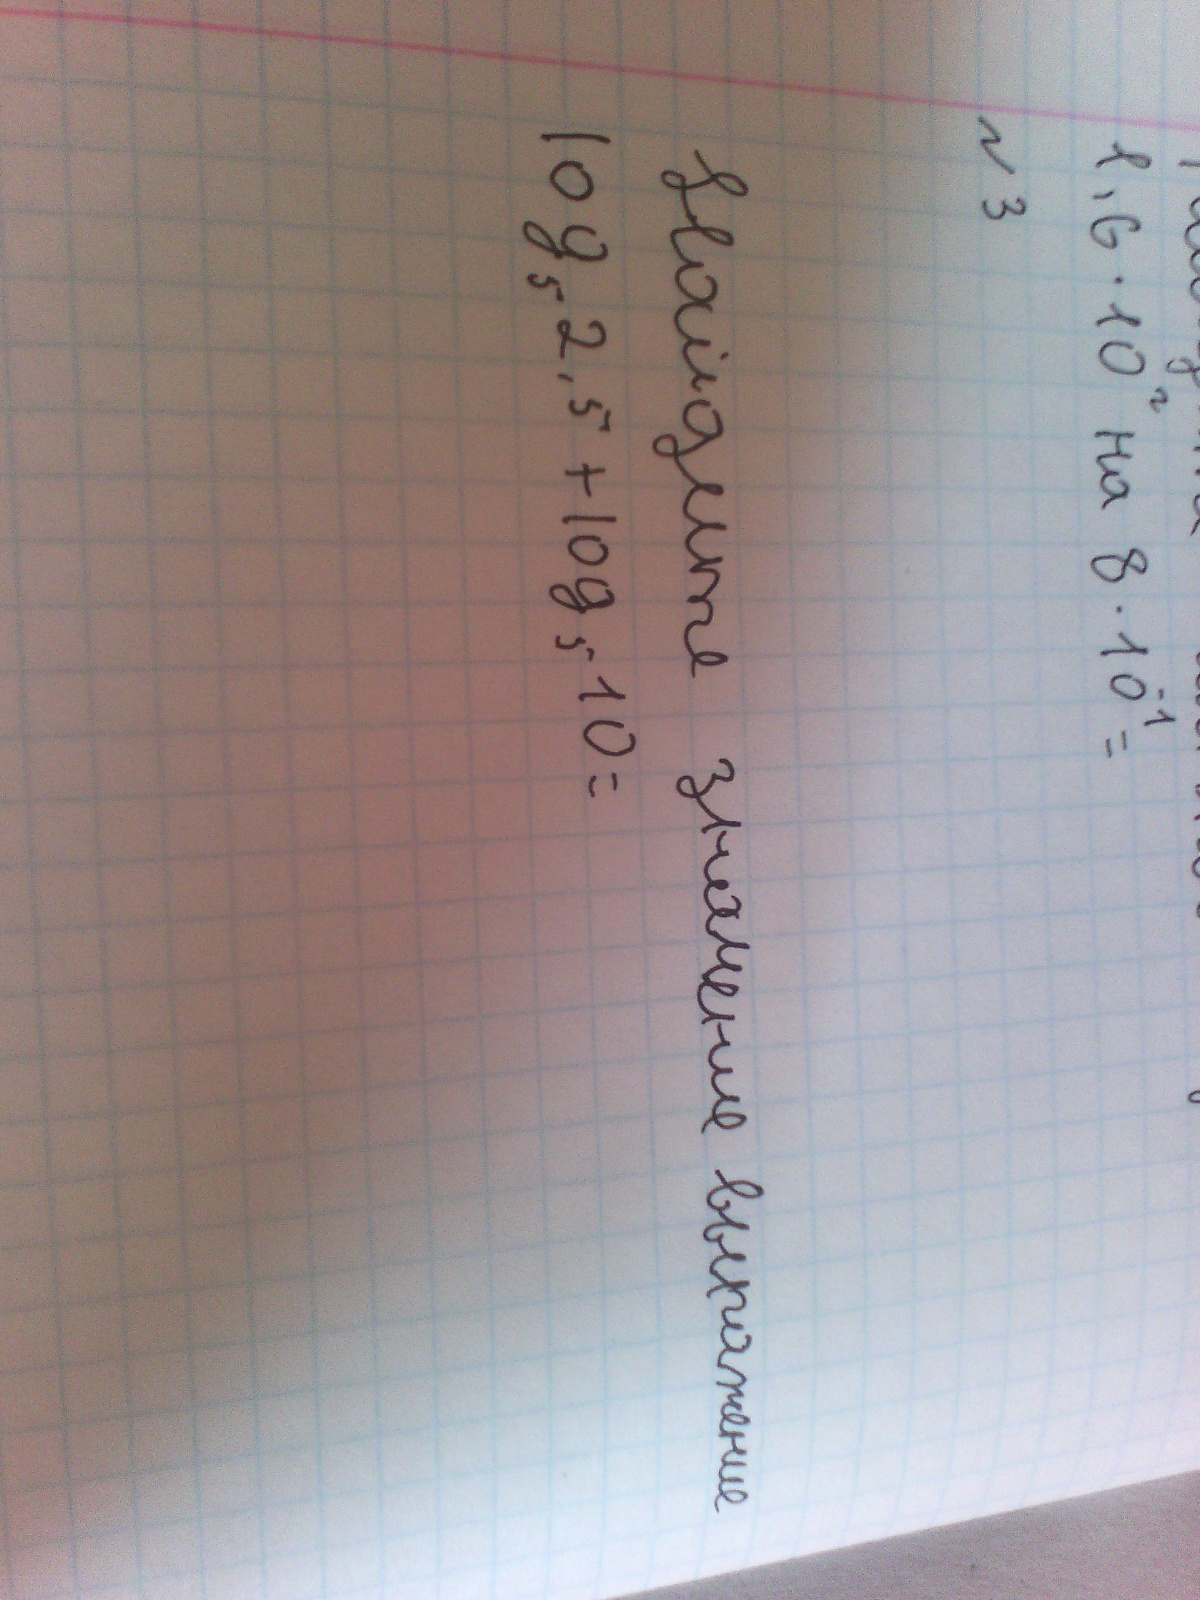 1,6 · 10² на 8 · 10⁻¹ =
№3
Найдите значение выражение
log₅ 2,5 + log₅ 10 =